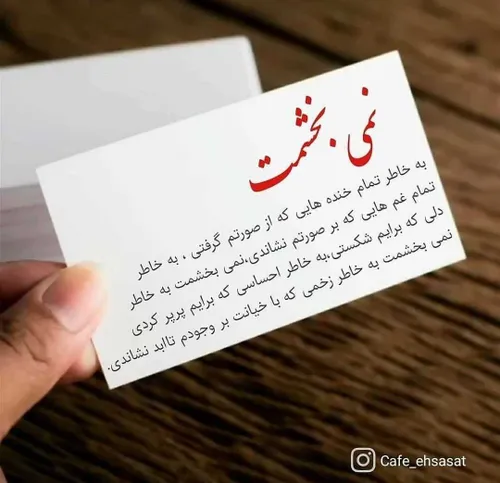 نمی بخشمت
به خاطر تمام خنده هایی که از صورتم گرفتی ، به خاطر
تمام غم هایی که بر صورتم نشاندی،نمی بخشمت به خاطر
دلی که برایم شکستی،به خاطر احساسی که برایم پرپر کردی
نمی بخشمت به خاطر زخمی که با خیانت بر وجودم تاابد نشاندی.
Cafe_ehsasat